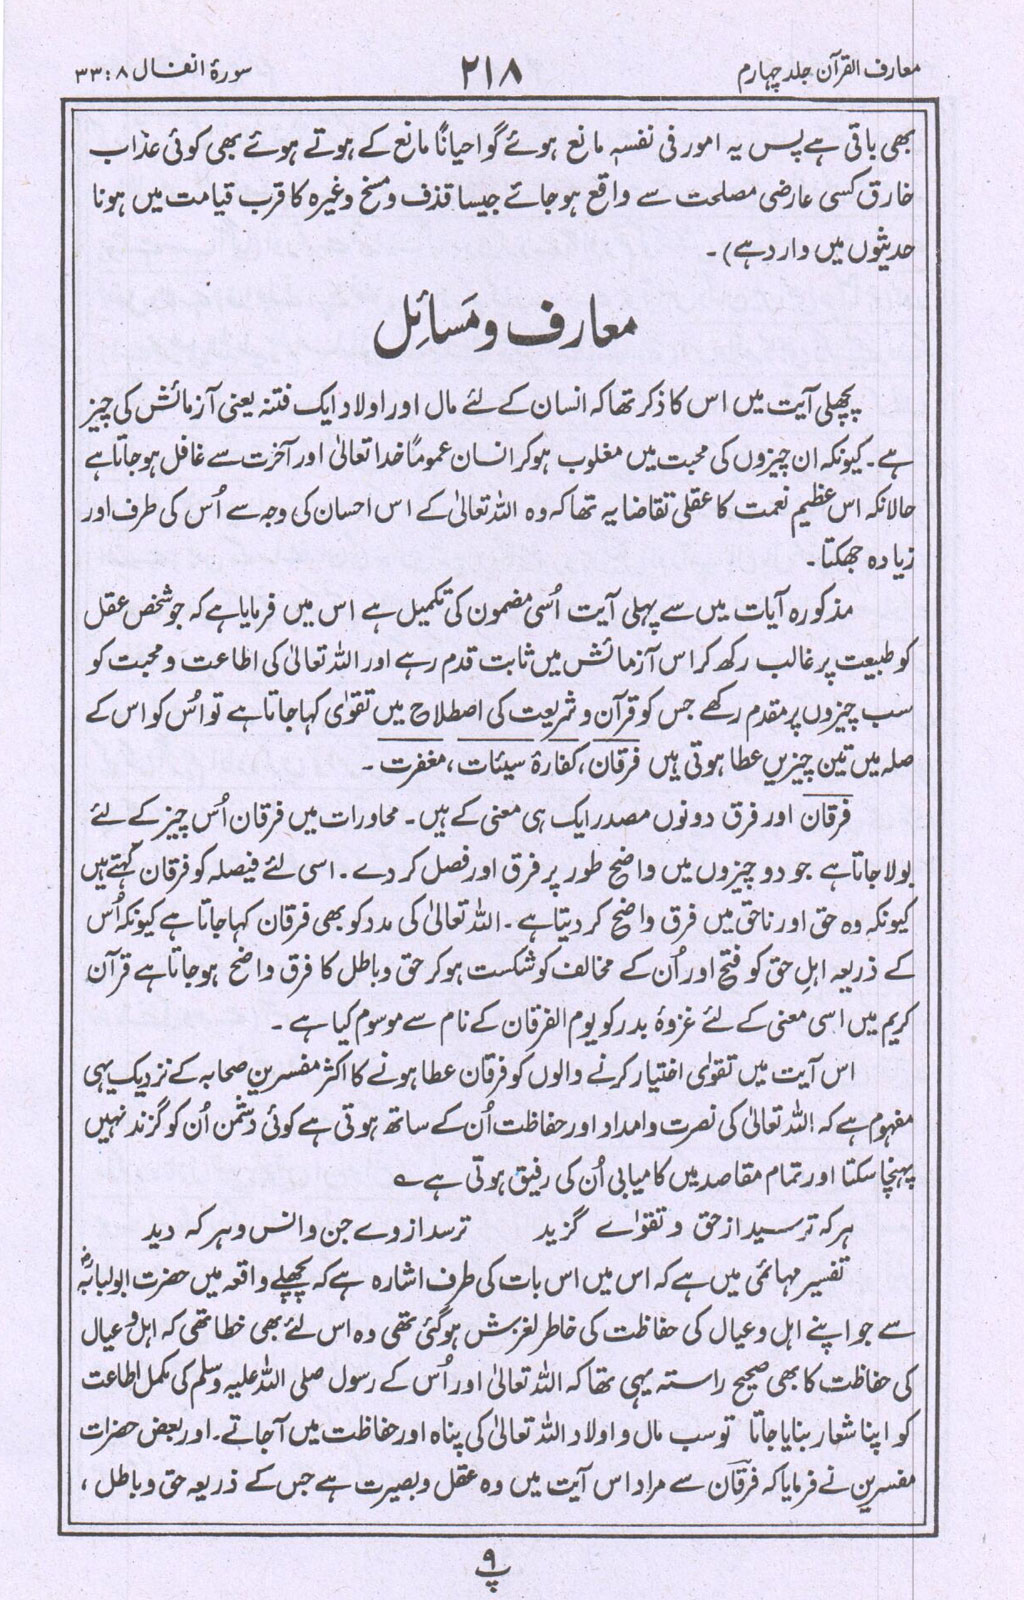 معارف القرآن جلد چہارم
۲۱۸
سورۂ انفال ۸ : ۳۳
بھی باقی ہے پس یہ امور فی نفسہٖ مانع ہوئے گو احیانًا مانع کے ہوتے ہوئے بھی کوئی عذاب
خارق کسی عارضی مصلحت سے واقع ہو جائے جیسا قذف و مسخ وغیرہ کا قرب قیامت میں ہونا
حدیثوں میں وارد ہے)۔
معارف و مَسائِل
پچھلی آیت میں اس کا ذکر تھا کہ انسان کے لئے مال اور اولاد ایک فتنہ یعنی آزمائش کی چیز
ہے۔ کیونکہ ان چیزوں کی محبت میں مغلوب ہو کر انسان عمومًا خدا تعالیٰ اور آخرت سے غافل ہو جاتا ہے
حالانکہ اس عظیم نعمت کا عقلی تقاضا یہ تھا کہ وہ اللہ تعالیٰ کے اس احسان کی وجہ سے اُس کی طرف اور
زیادہ جھکتا۔
مذکورہ آیات میں سے پہلی آیت اُسی مضمون کی تکمیل ہے اس میں فرمایا ہے کہ جو شخص عقل
کو طبیعت پر غالب رکھ کر اس آزمائش میں ثابت قدم رہے اور اللہ تعالیٰ کی اطاعت و محبت کو
سب چیزوں پر مقدم رکھے جس کو قرآن و شریعت کی اصطلاح میں تقوٰی کہا جاتا ہے تو اُس کو اس کے
صلہ میں تین چیزیں عطا ہوتی ہیں فرقان، کفارۂ سیئات، مغفرت۔
فرقان اور فرق دونوں مصدر ایک ہی معنی کے ہیں۔ محاورات میں فرقان اُس چیز کے لئے
بولا جاتا ہے جو دو چیزوں میں واضح طور پر فرق اور فصل کر دے۔ اسی لئے فیصلہ کو فرقان کہتے ہیں
کیونکہ وہ حق اور ناحق میں فرق واضح کر دیتا ہے۔ اللہ تعالیٰ کی مدد کو بھی فرقان کہا جاتا ہے کیونکہ اُس
کے ذریعہ اہلِ حق کو فتح اور اُن کے مخالف کو شکست ہو کر حق و باطل کا فرق واضح ہو جاتا ہے قرآن
کریم میں اسی معنی کے لئے غزوۂ بدر کو یوم الفرقان کے نام سے موسوم کیا ہے۔
اس آیت میں تقوٰی اختیار کرنے والوں کو فرقان عطا ہونے کا اکثر مفسرین صحابہ کے نزدیک یہی
مفہوم ہے کہ اللہ تعالیٰ کی نصرت و امداد اور حفاظت اُن کے ساتھ ہوتی ہے کوئی دشمن اُن کو گزند نہیں
پہنچا سکتا اور تمام مقاصد میں کامیابی اُن کی رفیق ہوتی ہے ؎
ہر کہ ترسید از حق و تقوٰے گزید ترسد از وے جن و انس و ہر کہ دید
تفسیر مہائمی میں ہے کہ اس میں اس بات کی طرف اشارہ ہے کہ پچھلے واقعہ میں حضرت ابولبابہؓ
سے جو اپنے اہل و عیال کی حفاظت کی خاطر لغزش ہو گئی تھی وہ اس لئے بھی خطا تھی کہ اہل و عیال
کی حفاظت کا بھی صحیح راستہ یہی تھا کہ اللہ تعالیٰ اور اُس کے رسول صلی اللہ علیہ وسلم کی مکمل اطاعت
کو اپنا شعار بنایا جاتا تو سب مال و اولاد اللہ تعالیٰ کی پناہ اور حفاظت میں آ جاتے۔ اور بعض حضرات
مفسرین نے فرمایا کہ فرقان سے مراد اس آیت میں وہ عقل و بصیرت ہے جس کے ذریعہ حق و باطل ،
پ ۹